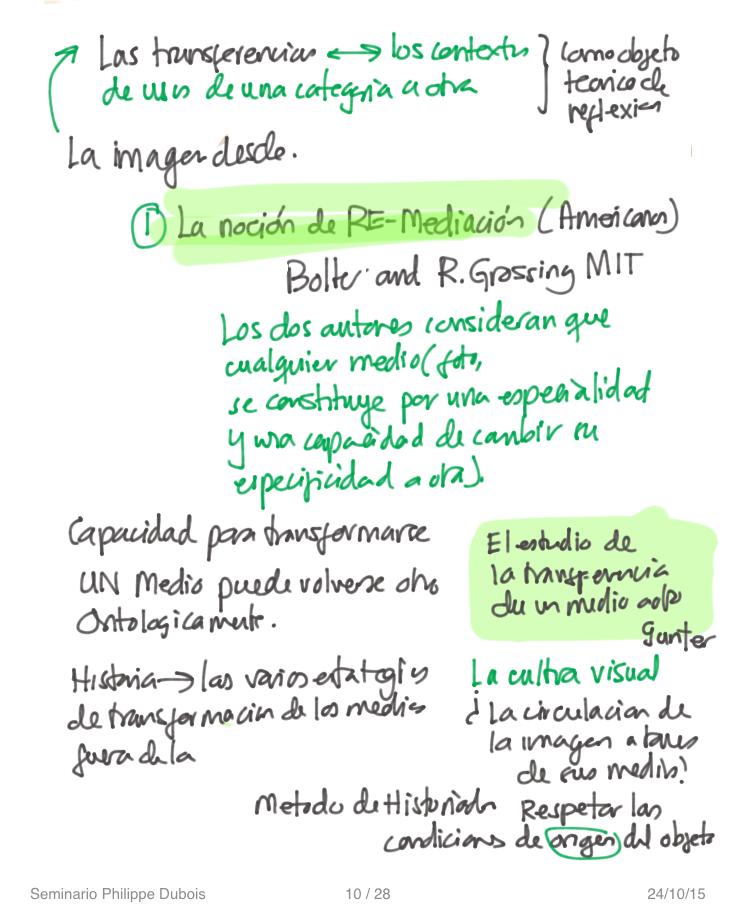 Las transferencias ↔ los contextos
de usos de una categoría a otra
como objeto
teorico de
reflexión
La imagen desde.
① La noción de RE-Mediación (Americanos)
Bolter and R. Grossing MIT
Los dos autores consideran que
cualquier medio (foto,
se constituye por una especialidad
y una capacidad de cambir su
especificidad a otra).
Capacidad para transformarse
UN Medio puede volverse otro
Ontologicamente.
El estudio de
la transferencia
de un medio a otro
Gunter
Historia → las varios estategies
de transformacion de los medios
fuera de la
La cultra visual
¿ La circulacion de
la imagen a traves
de sus medios?
Metodo de Historiador
Respetar las
condiciones de origen del objeto
Seminario Philippe Dubois
10 / 28
24/10/15